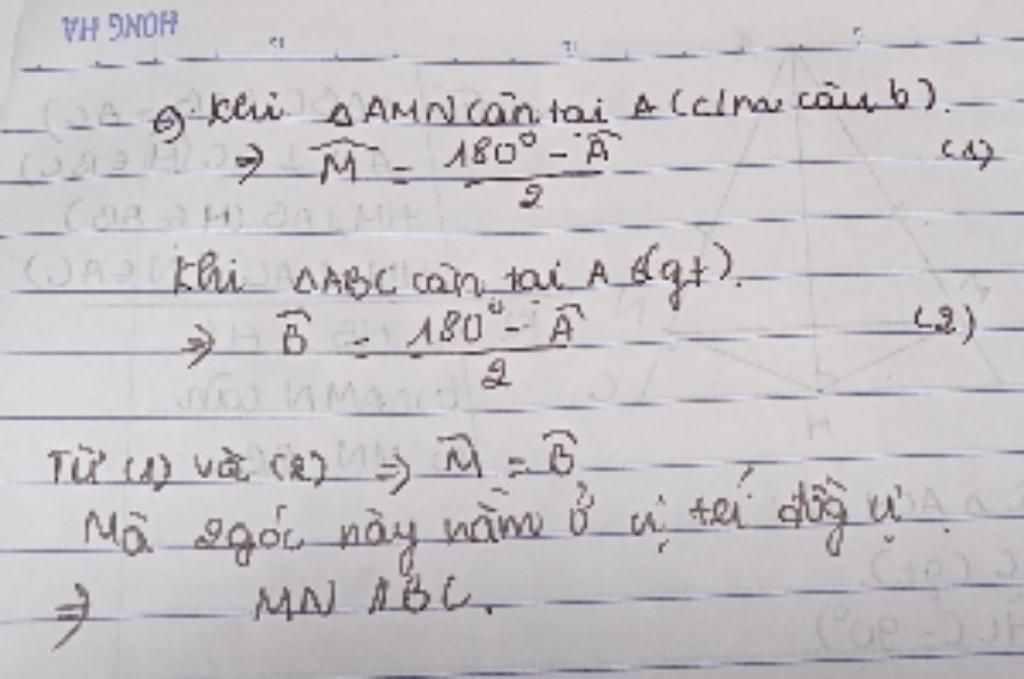 HONG HA
c) Khi △AMN cân tại A (c/m câu b).
⇒ M̂ = (180° - Â)/2 (1)
Khi △ABC cân tại A (gt).
⇒ B̂ = (180° - Â)/2 (2)
Từ (1) và (2) ⇒ M̂ = B̂
Mà 2 góc này nằm ở vị trí đồg vị
⇒ MN // BC.